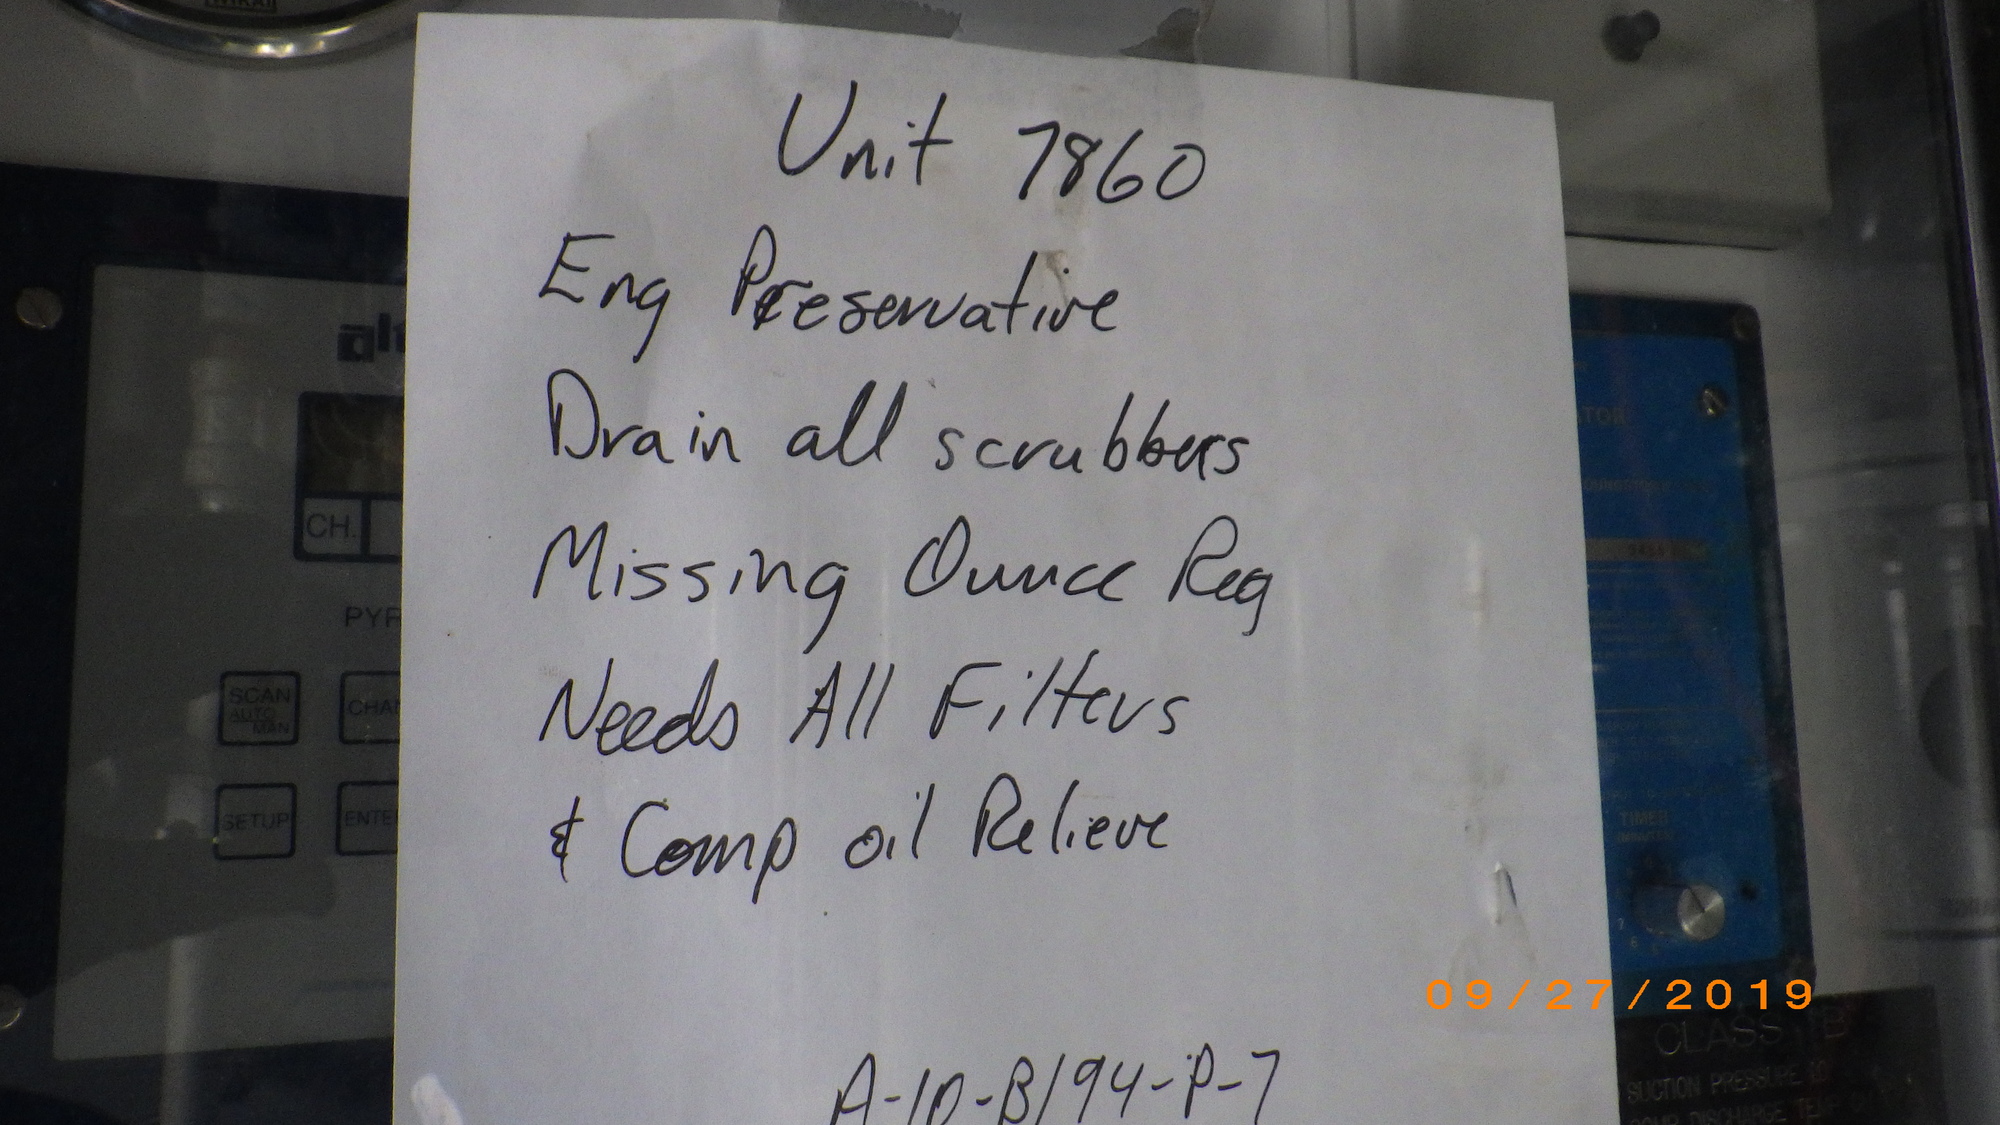 Unit 7860
Eng Preservative
Drain all scrubbers
Missing Ounce Reg
Needs All Filters
& Comp oil Relieve
A-10-B/94-P-7
09/27/2019
CH.
SCAN
AUTO
MAN
SETUP
TIMER
CLASS "B"
SUCTION PRESSURE LO